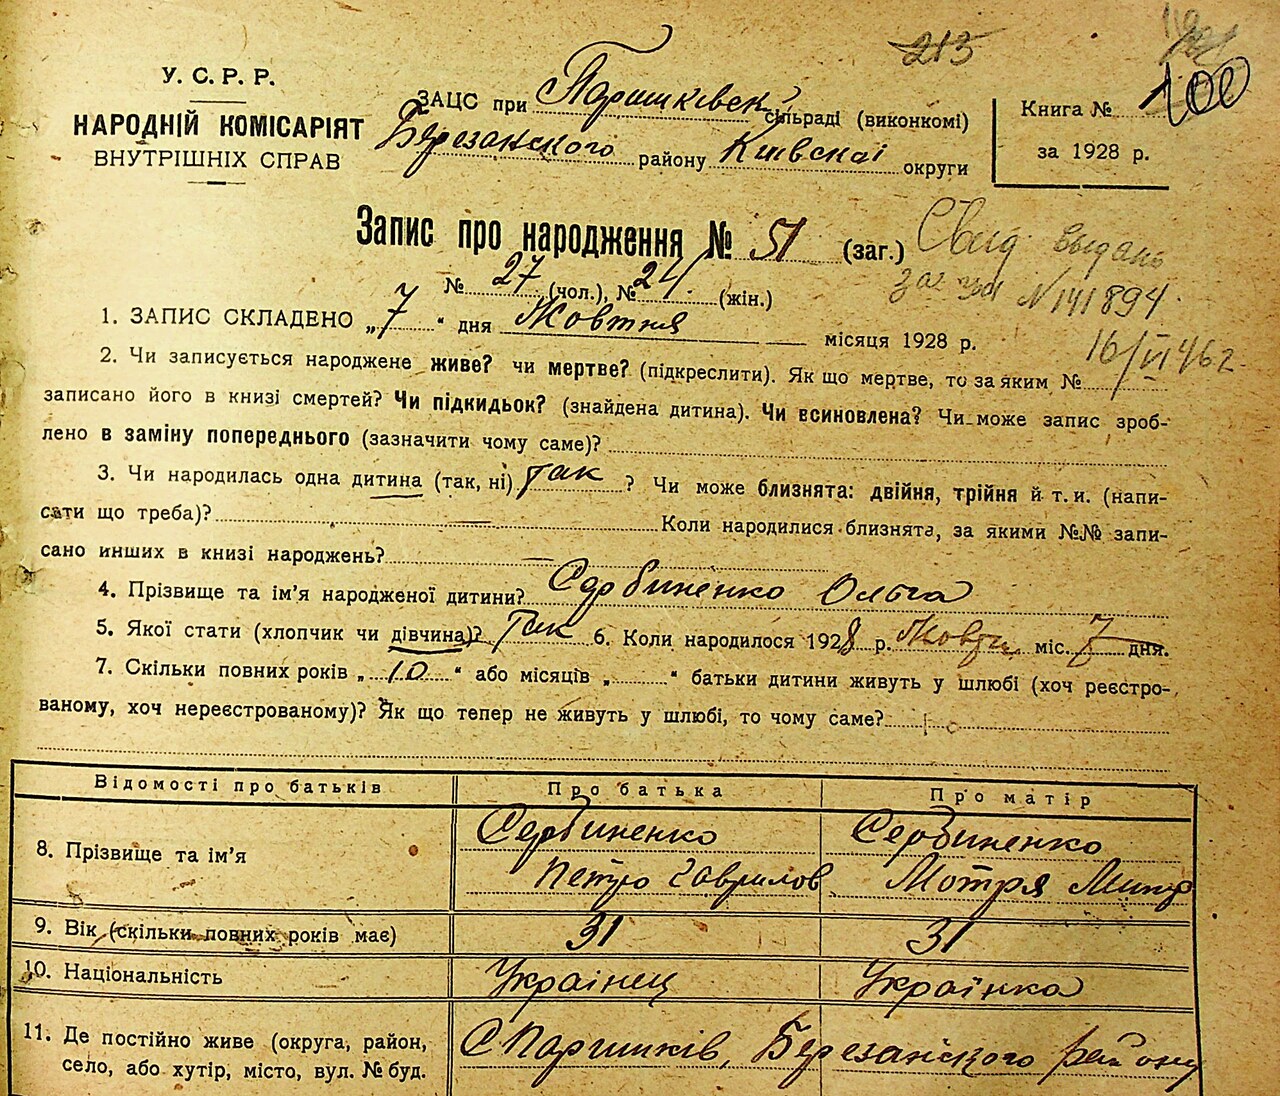 213
100
У. С. Р. Р.
НАРОДНІЙ КОМІСАРІЯТ
ВНУТРІШНІХ СПРАВ
ЗАЦС при Паришківск. сільраді (виконкомі)
Березанського району Київскаі округи
Книга №
за 1928 р.
Запис про народження № 51 (заг.)
№ 27 (чол.), № 24 (жін.)
Свид. выдань
за № 141894
16/VI 46 г.
1. ЗАПИС СКЛАДЕНО „7“ дня Жовтня місяця 1928 р.
2. Чи записується народжене живе? чи мертве? (підкреслити). Як що мертве, то за яким №
записано його в книзі смертей? Чи підкидьок? (знайдена дитина). Чи всиновлена? Чи може запис зроб-
лено в заміну попереднього (зазначити чому саме)?
3. Чи народилась одна дитина (так, ні) так ? Чи може близнята: двійня, трійня й т. и. (напи-
сати що треба)? Коли народилися близнята, за якими №№ запи-
сано инших в книзі народжень?
4. Прізвище та ім’я народженої дитини? Сербиненко Ольга
5. Якої стати (хлопчик чи дівчина)? Так 6. Коли народилося 1928 р. Жовтн міс. 7 дня.
7. Скільки повних років „10“ або місяців „ “ батьки дитини живуть у шлюбі (хоч реєстро-
ваному, хоч нереєстрованому)? Як що тепер не живуть у шлюбі, то чому саме?
Відомості про батьків Про батька Про матір
8. Прізвище та ім’я
Сербиненко
Петро Гаврилов
Сербиненко
Мотря Митр
9. Вік (скільки повних років має) 31 31
10. Національність Украінец Украінка
11. Де постійно живе (округа, район,
село, або хутір, місто, вул. № буд.
С Паришків, Березанского району